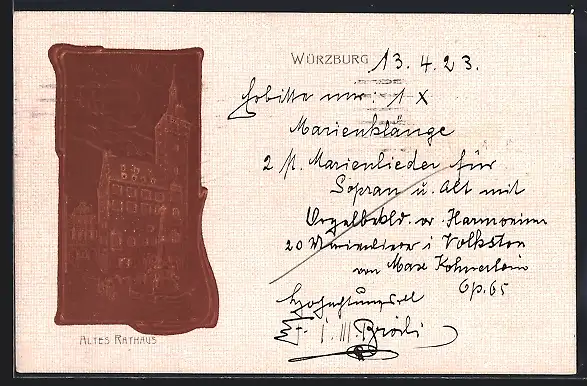 WÜRZBURG 13.4.23.
Erbitte nur: 1 X
Marienklänge
2 st. Marienlieder für
Sopran u. Alt mit
Orgelbekld. or Harmonium
20 Marienlieder i Volkston
von Max
Op. 65
Hochachtungsvoll
ALTES RATHAUS